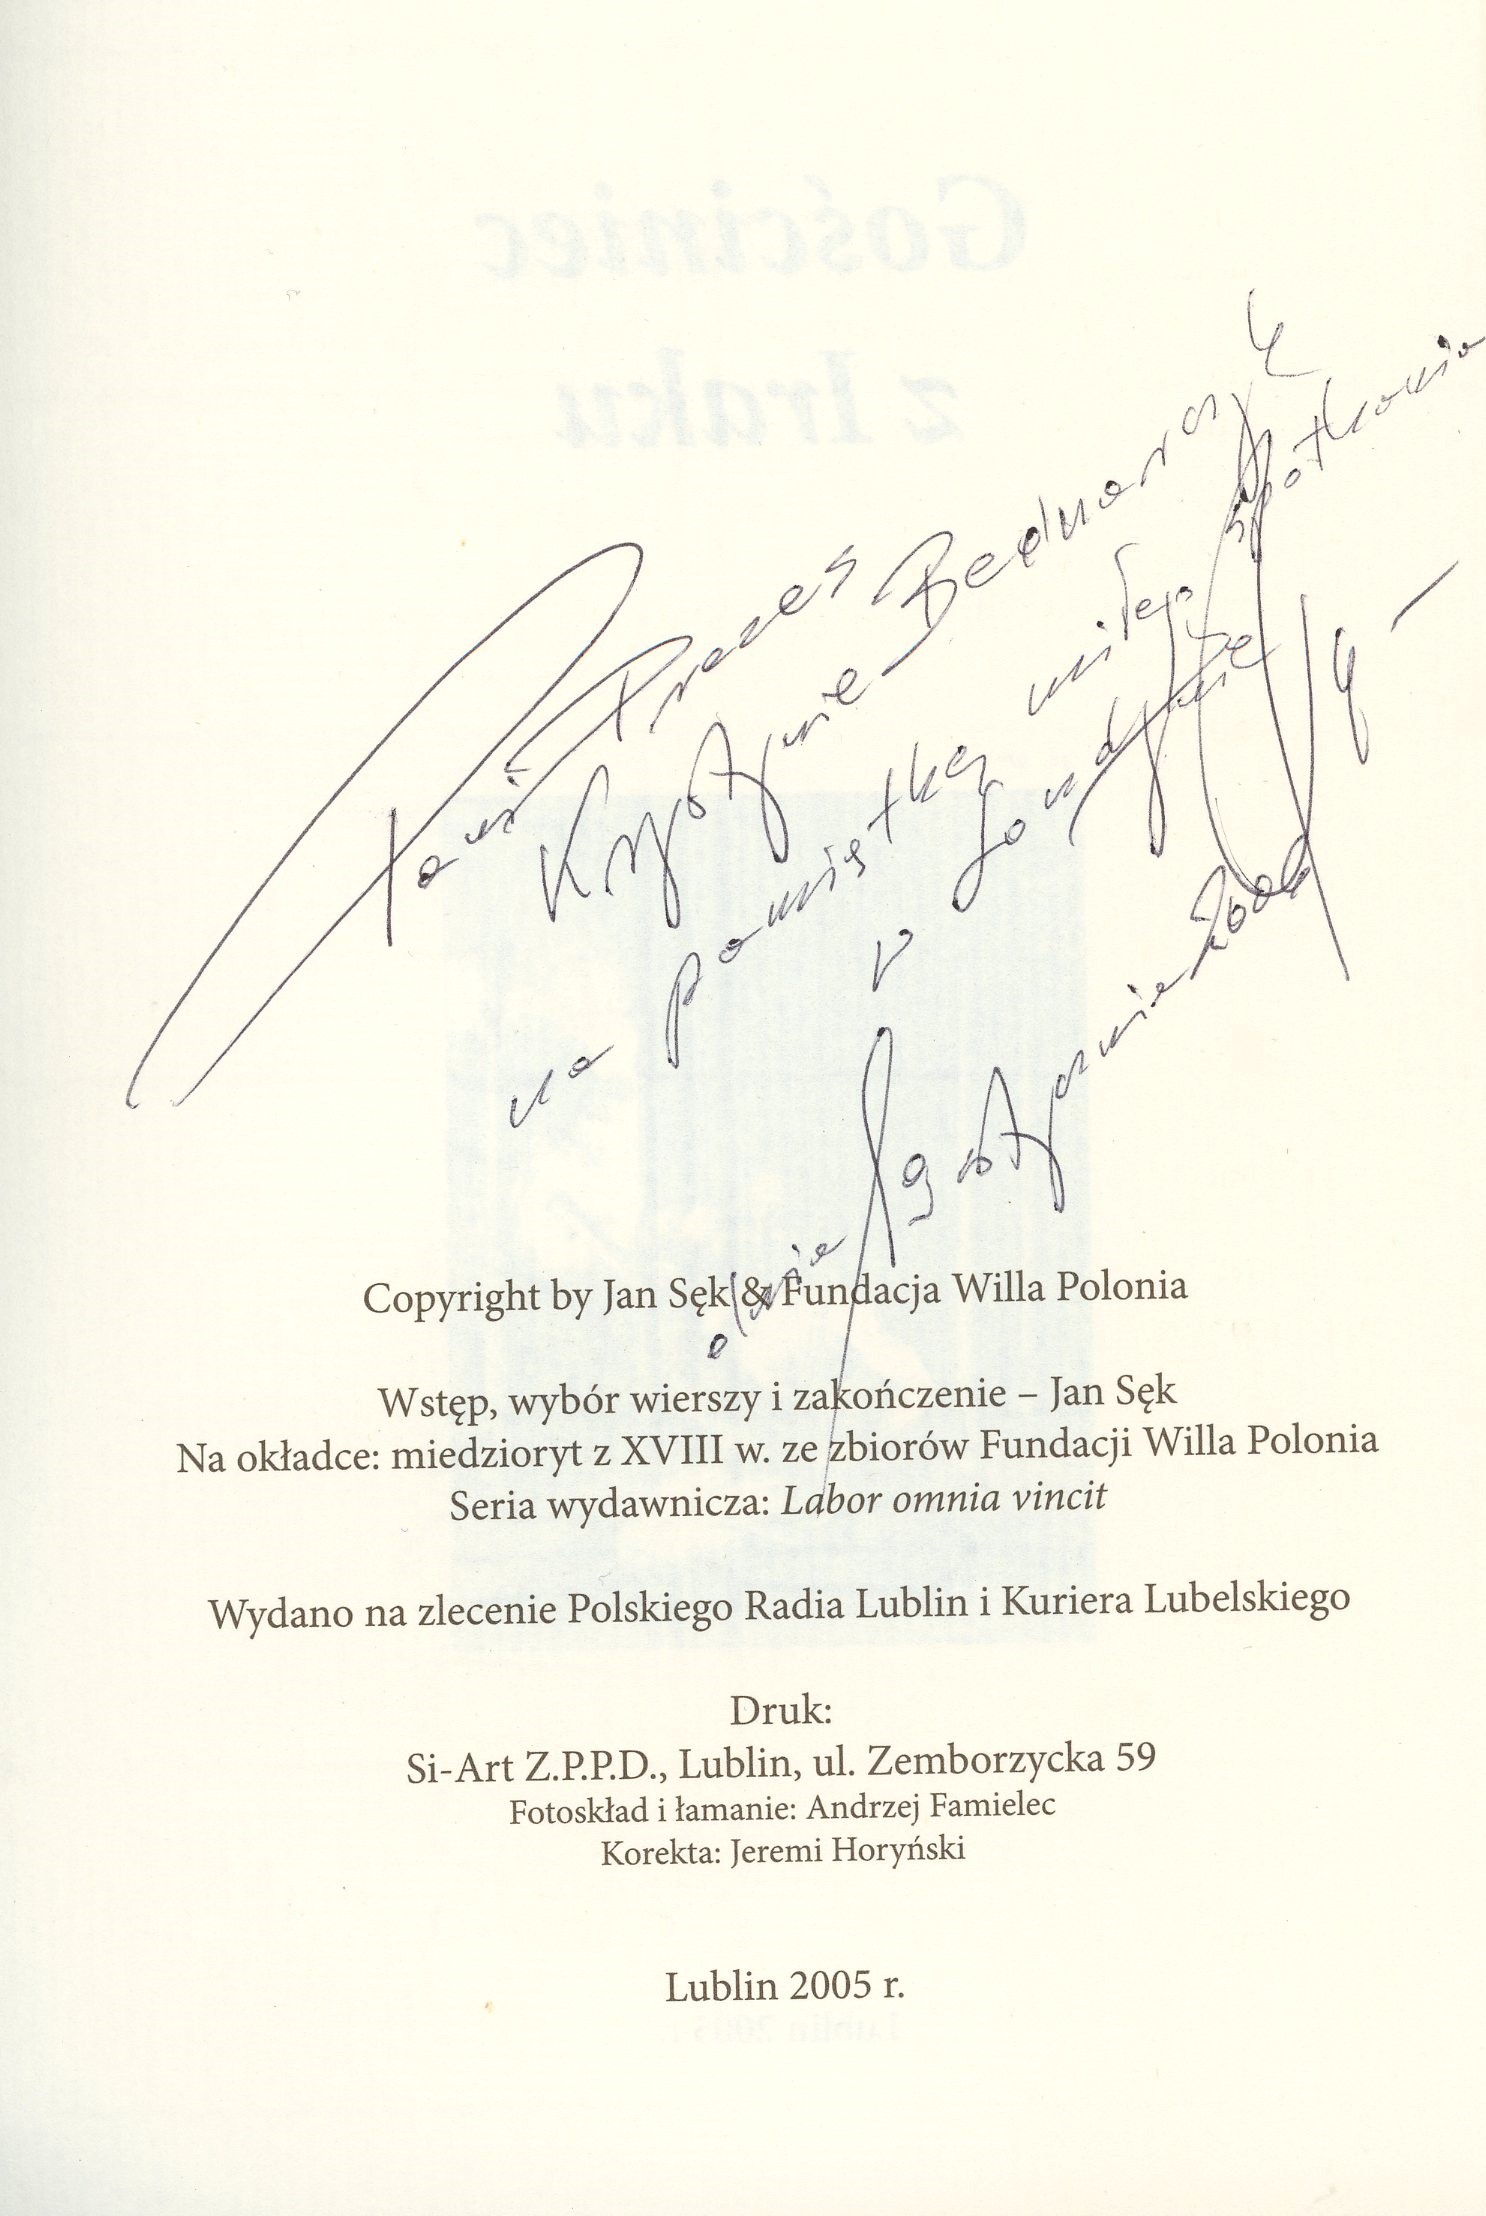 Gościniec
z Iraku
Pani Prezes
Krystynie Bednarczyk
na pamiątkę miłego spotkania
v Londynie
dnie stycznia
Copyright by Jan Sęk & Fundacja Willa Polonia
Wstęp, wybór wierszy i zakończenie – Jan Sęk
Na okładce: miedzioryt z XVIII w. ze zbiorów Fundacji Willa Polonia
Seria wydawnicza: Labor omnia vincit
Wydano na zlecenie Polskiego Radia Lublin i Kuriera Lubelskiego
Druk:
Si-Art Z.P.P.D., Lublin, ul. Zemborzycka 59
Fotoskład i łamanie: Andrzej Famielec
Korekta: Jeremi Horyński
Lublin 2005 r.
Lublin 2005